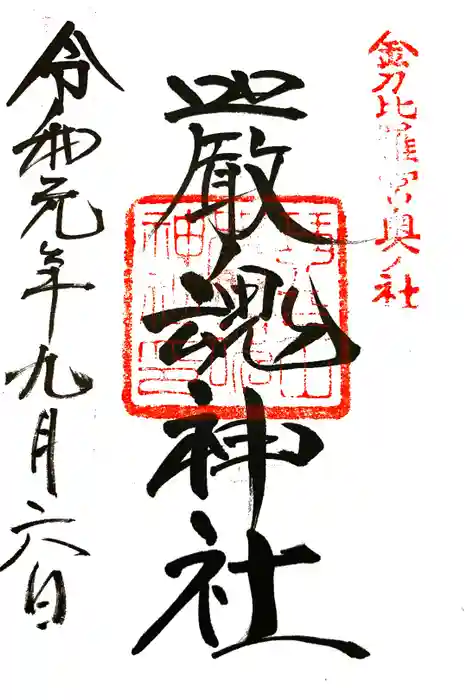 金刀比羅宮奥ノ社
嚴魂神社
令和元年九月六日